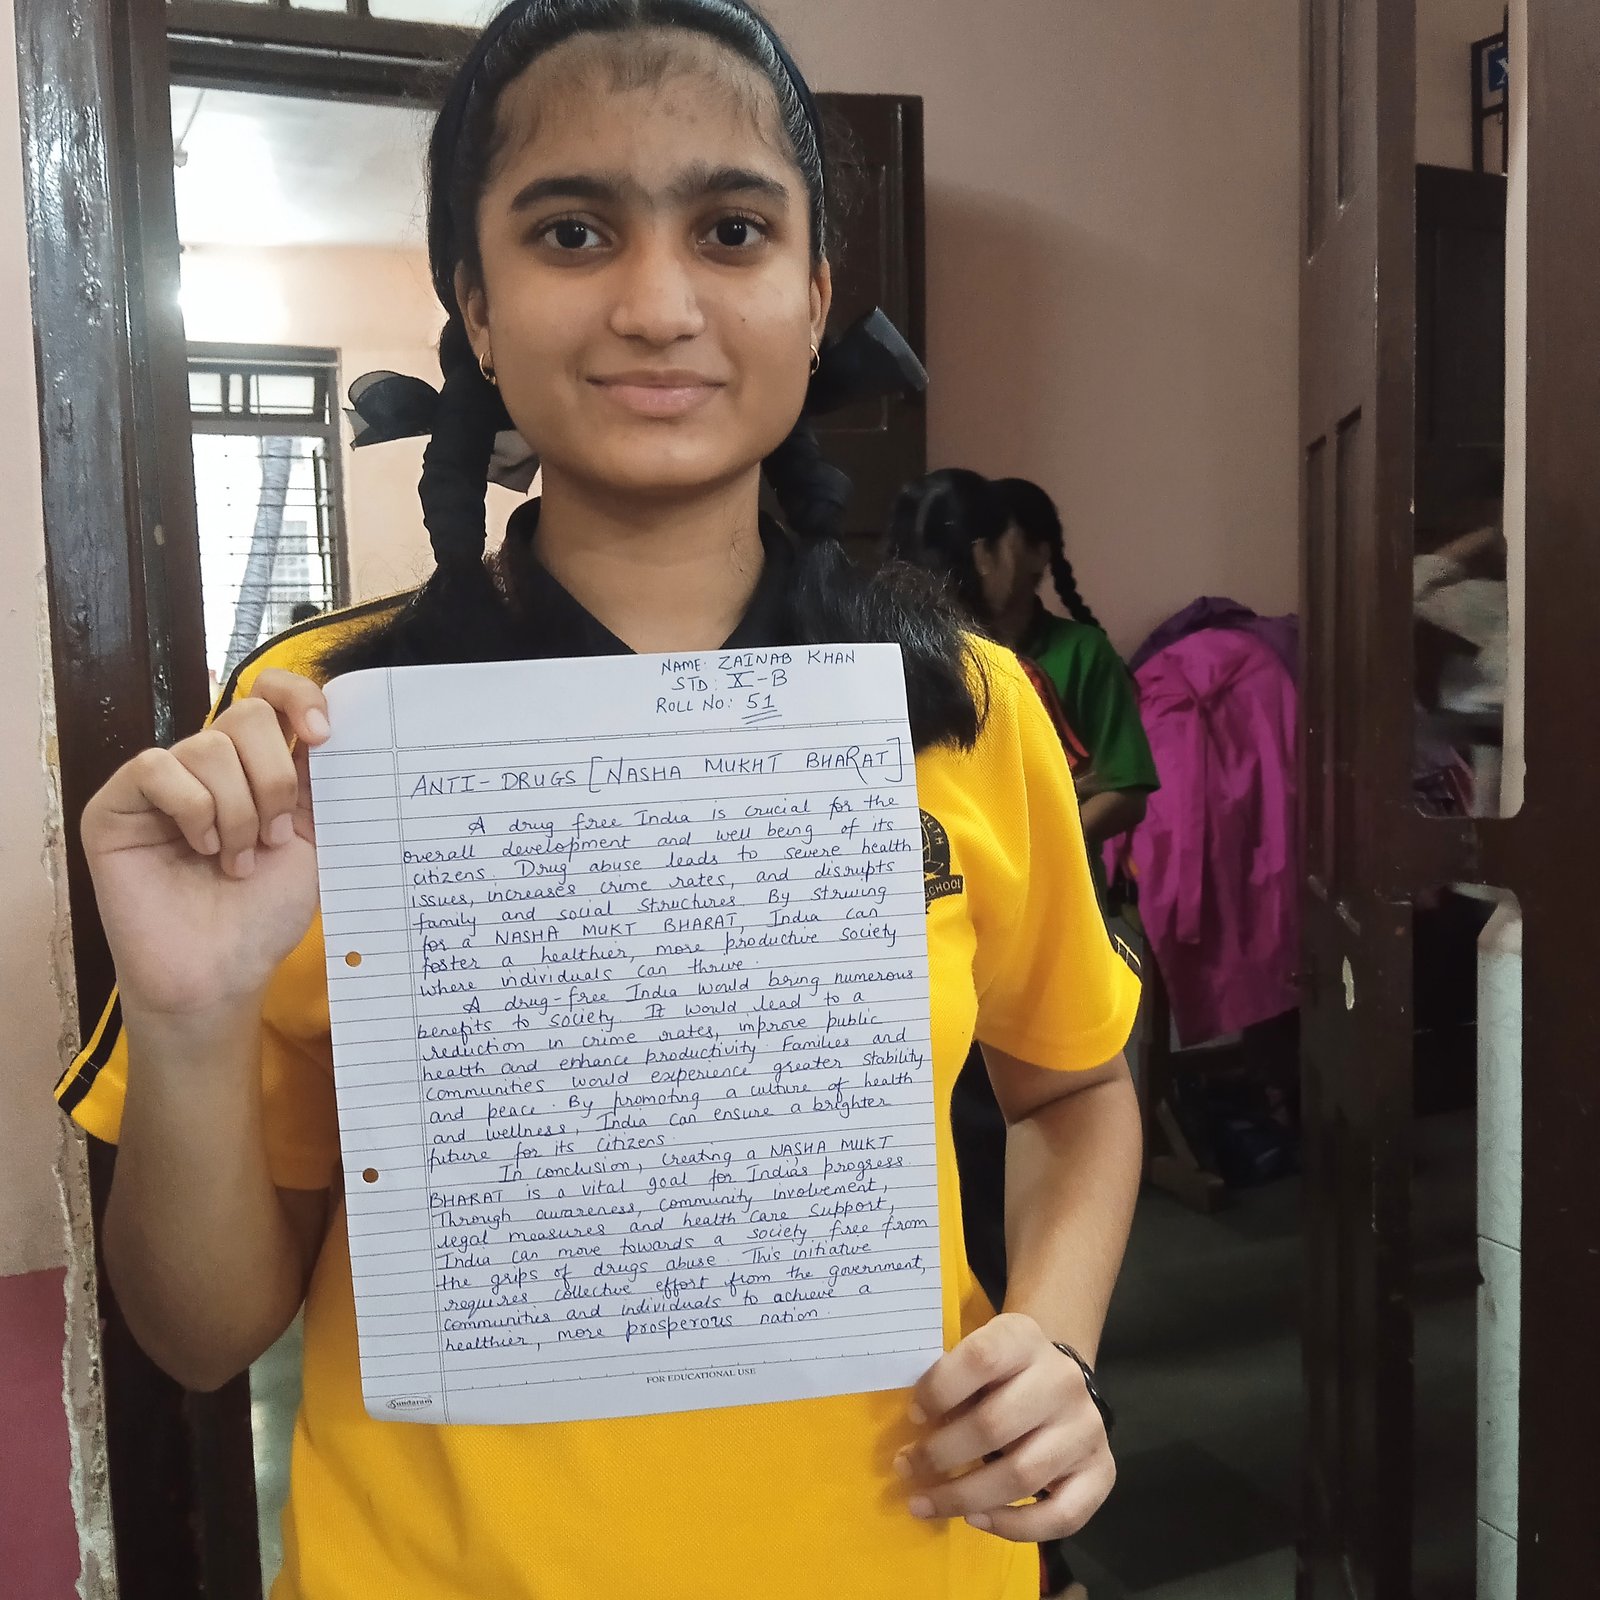 NAME: ZAINAB KHAN
STD: X-B
ROLL NO: 51
ANTI-DRUGS [NASHA MUKHT BHARAT]
A drug free India is crucial for the
overall development and well being of its
citizens. Drug abuse leads to severe health
issues, increases crime rates, and disrupts
family and social structures. By striving
for a NASHA MUKT BHARAT, India can
foster a healthier, more productive society
where individuals can thrive.
A drug-free India would bring numerous
benefits to society. It would lead to a
reduction in crime rates, improve public
health and enhance productivity. Families and
communities would experience greater stability
and peace. By promoting a culture of health
and wellness, India can ensure a brighter
future for its citizens.
In conclusion, creating a NASHA MUKT
BHARAT is a vital goal for India's progress.
Through awareness, community involvement,
legal measures and health care support,
India can move towards a society free from
the grips of drugs abuse. This initiative
requires collective effort from the government,
communities and individuals to achieve a
healthier, more prosperous nation.
FOR EDUCATIONAL USE
Sundaram
SCHOOL